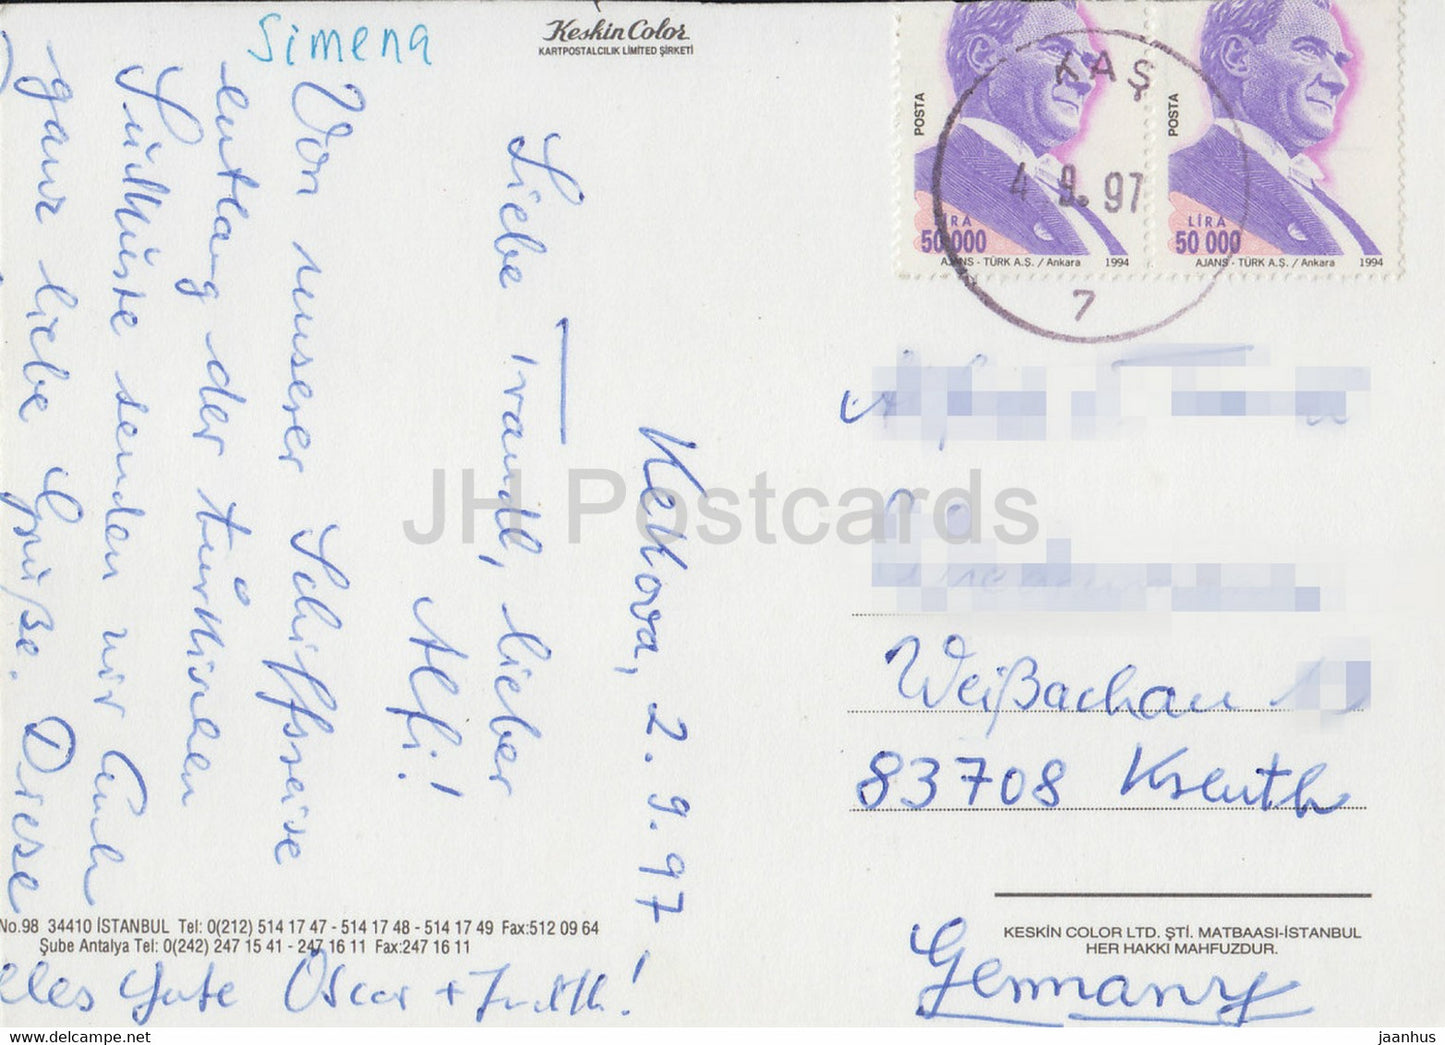 Simena
Keskin Color
KARTPOSTALCILIK LİMİTED ŞİRKETİ
Kekova, 2.9.97
Liebe Traudl, lieber
Alfi!
Von unserer Schiffsreise
entlang der türkischen
Südküste senden wir Euch
ganz liebe Grüße. Diese
lles Gute Oscar + Judith!
No.98 34410 İSTANBUL Tel: 0(212) 514 17 47 - 514 17 48 - 514 17 49 Fax:512 09 64
Şube Antalya Tel: 0(242) 247 15 41 - 247 16 11 Fax:247 16 11
POSTA
LİRA
50 000
AJANS - TÜRK A.Ş. / Ankara 1994
POSTA
LİRA
50 000
AJANS - TÜRK A.Ş. / Ankara 1994
KAŞ
4.9.97
7
Weißachau
83708 Kreuth
Germany
KESKİN COLOR LTD. ŞTİ. MATBAASI-İSTANBUL
HER HAKKI MAHFUZDUR.
JH Postcards
www.jhpostcards.com
jaanhus